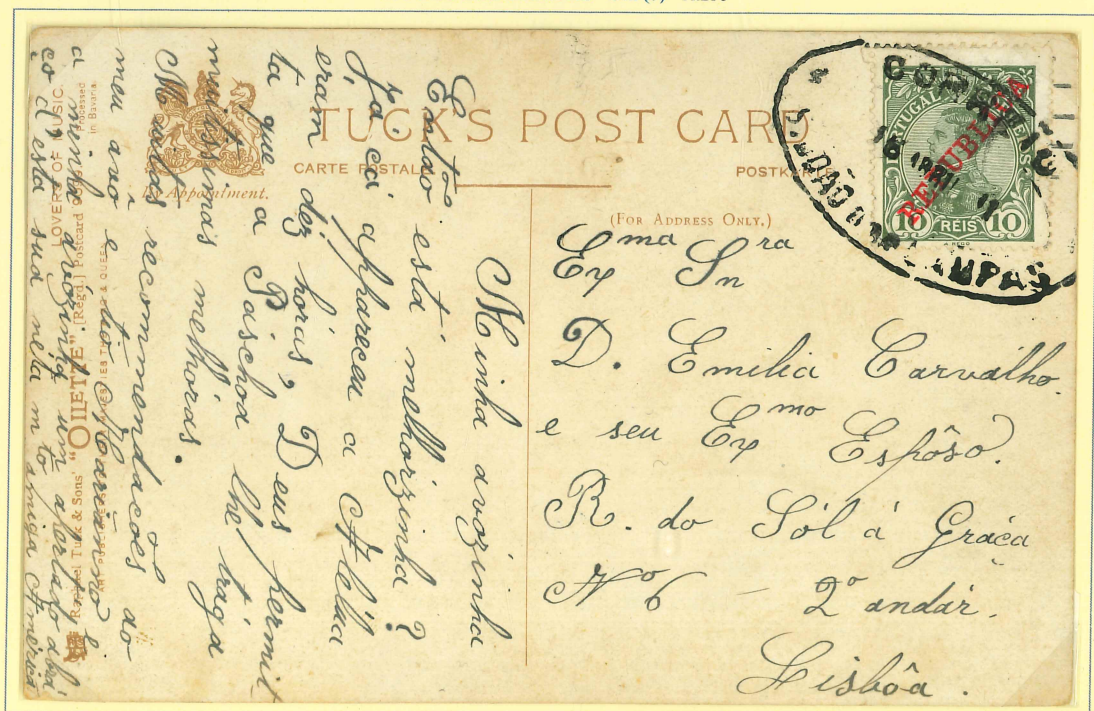 TUCK'S POST CARD
CARTE POSTALE
POSTKARTE
By Appointment.
(For Address Only.)
CORREIO
18 ABRIL 11
S. JOÃO DAS LAMPAS
PORTUGAL
REPUBLICA
10 REIS 10
Exma Snra
D. Emilia Carvalho
e seu Exmo Espôso.
R. do Sól á Graça
Nº 6 – 2º andar.
Lisbôa.
Minha avózinha
Então está melhorzinha?
Já cá appareceu a
eram dez horas, Deus permit
ta que a Páschoa lhe traga
muitissimas melhoras.
Muitas recommendações ao
meu avô e tio Marianno e
a minha avózinha um apertado abra
ço d'esta sua neta mto amiga America
Raphael Tuck & Sons' "OILETTE" [Regd.] Postcard
LOVERS OF MUSIC.
Processed
in Bavaria.
ART PUBLISHERS TO THEIR MAJESTIES THE KING & QUEEN